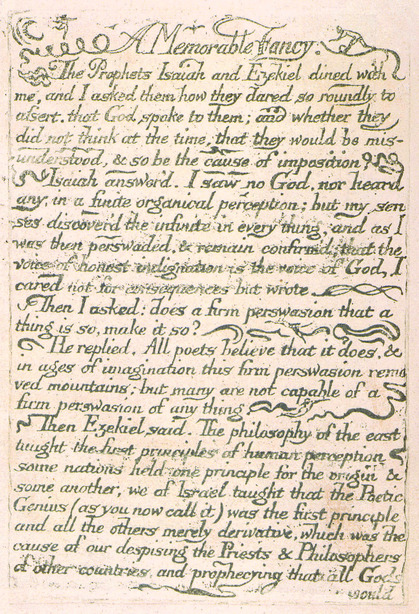 A Memorable Fancy.
The Prophets Isaiah and Ezekiel dined with
me, and I asked them how they dared so roundly to
assert. that God spoke to them; and whether they
did not think at the time, that they would be mis-
understood, & so be the cause of imposition?
Isaiah answer'd. I saw no God, nor heard
any, in a finite organical perception; but my sen
ses discover'd the infinite in every thing, and as I
was then perswaded, & remain confirm'd; that the
voice of honest indignation is the voice of God, I
cared not for consequences but wrote.
Then I asked: does a firm perswasion that a
thing is so, make it so?
He replied. All poets believe that it does, &
in ages of imagination this firm perswasion remo
ved mountains; but many are not capable of a
firm perswasion of any thing.
Then Ezekiel said. The philosophy of the east
taught the first principles of human perception
some nations held one principle for the origin &
some another, we of Israel taught that the Poetic
Genius (as you now call it) was the first principle
and all the others merely derivative, which was the
cause of our despising the Priests & Philosophers
of other countries, and prophecying that all Gods
would